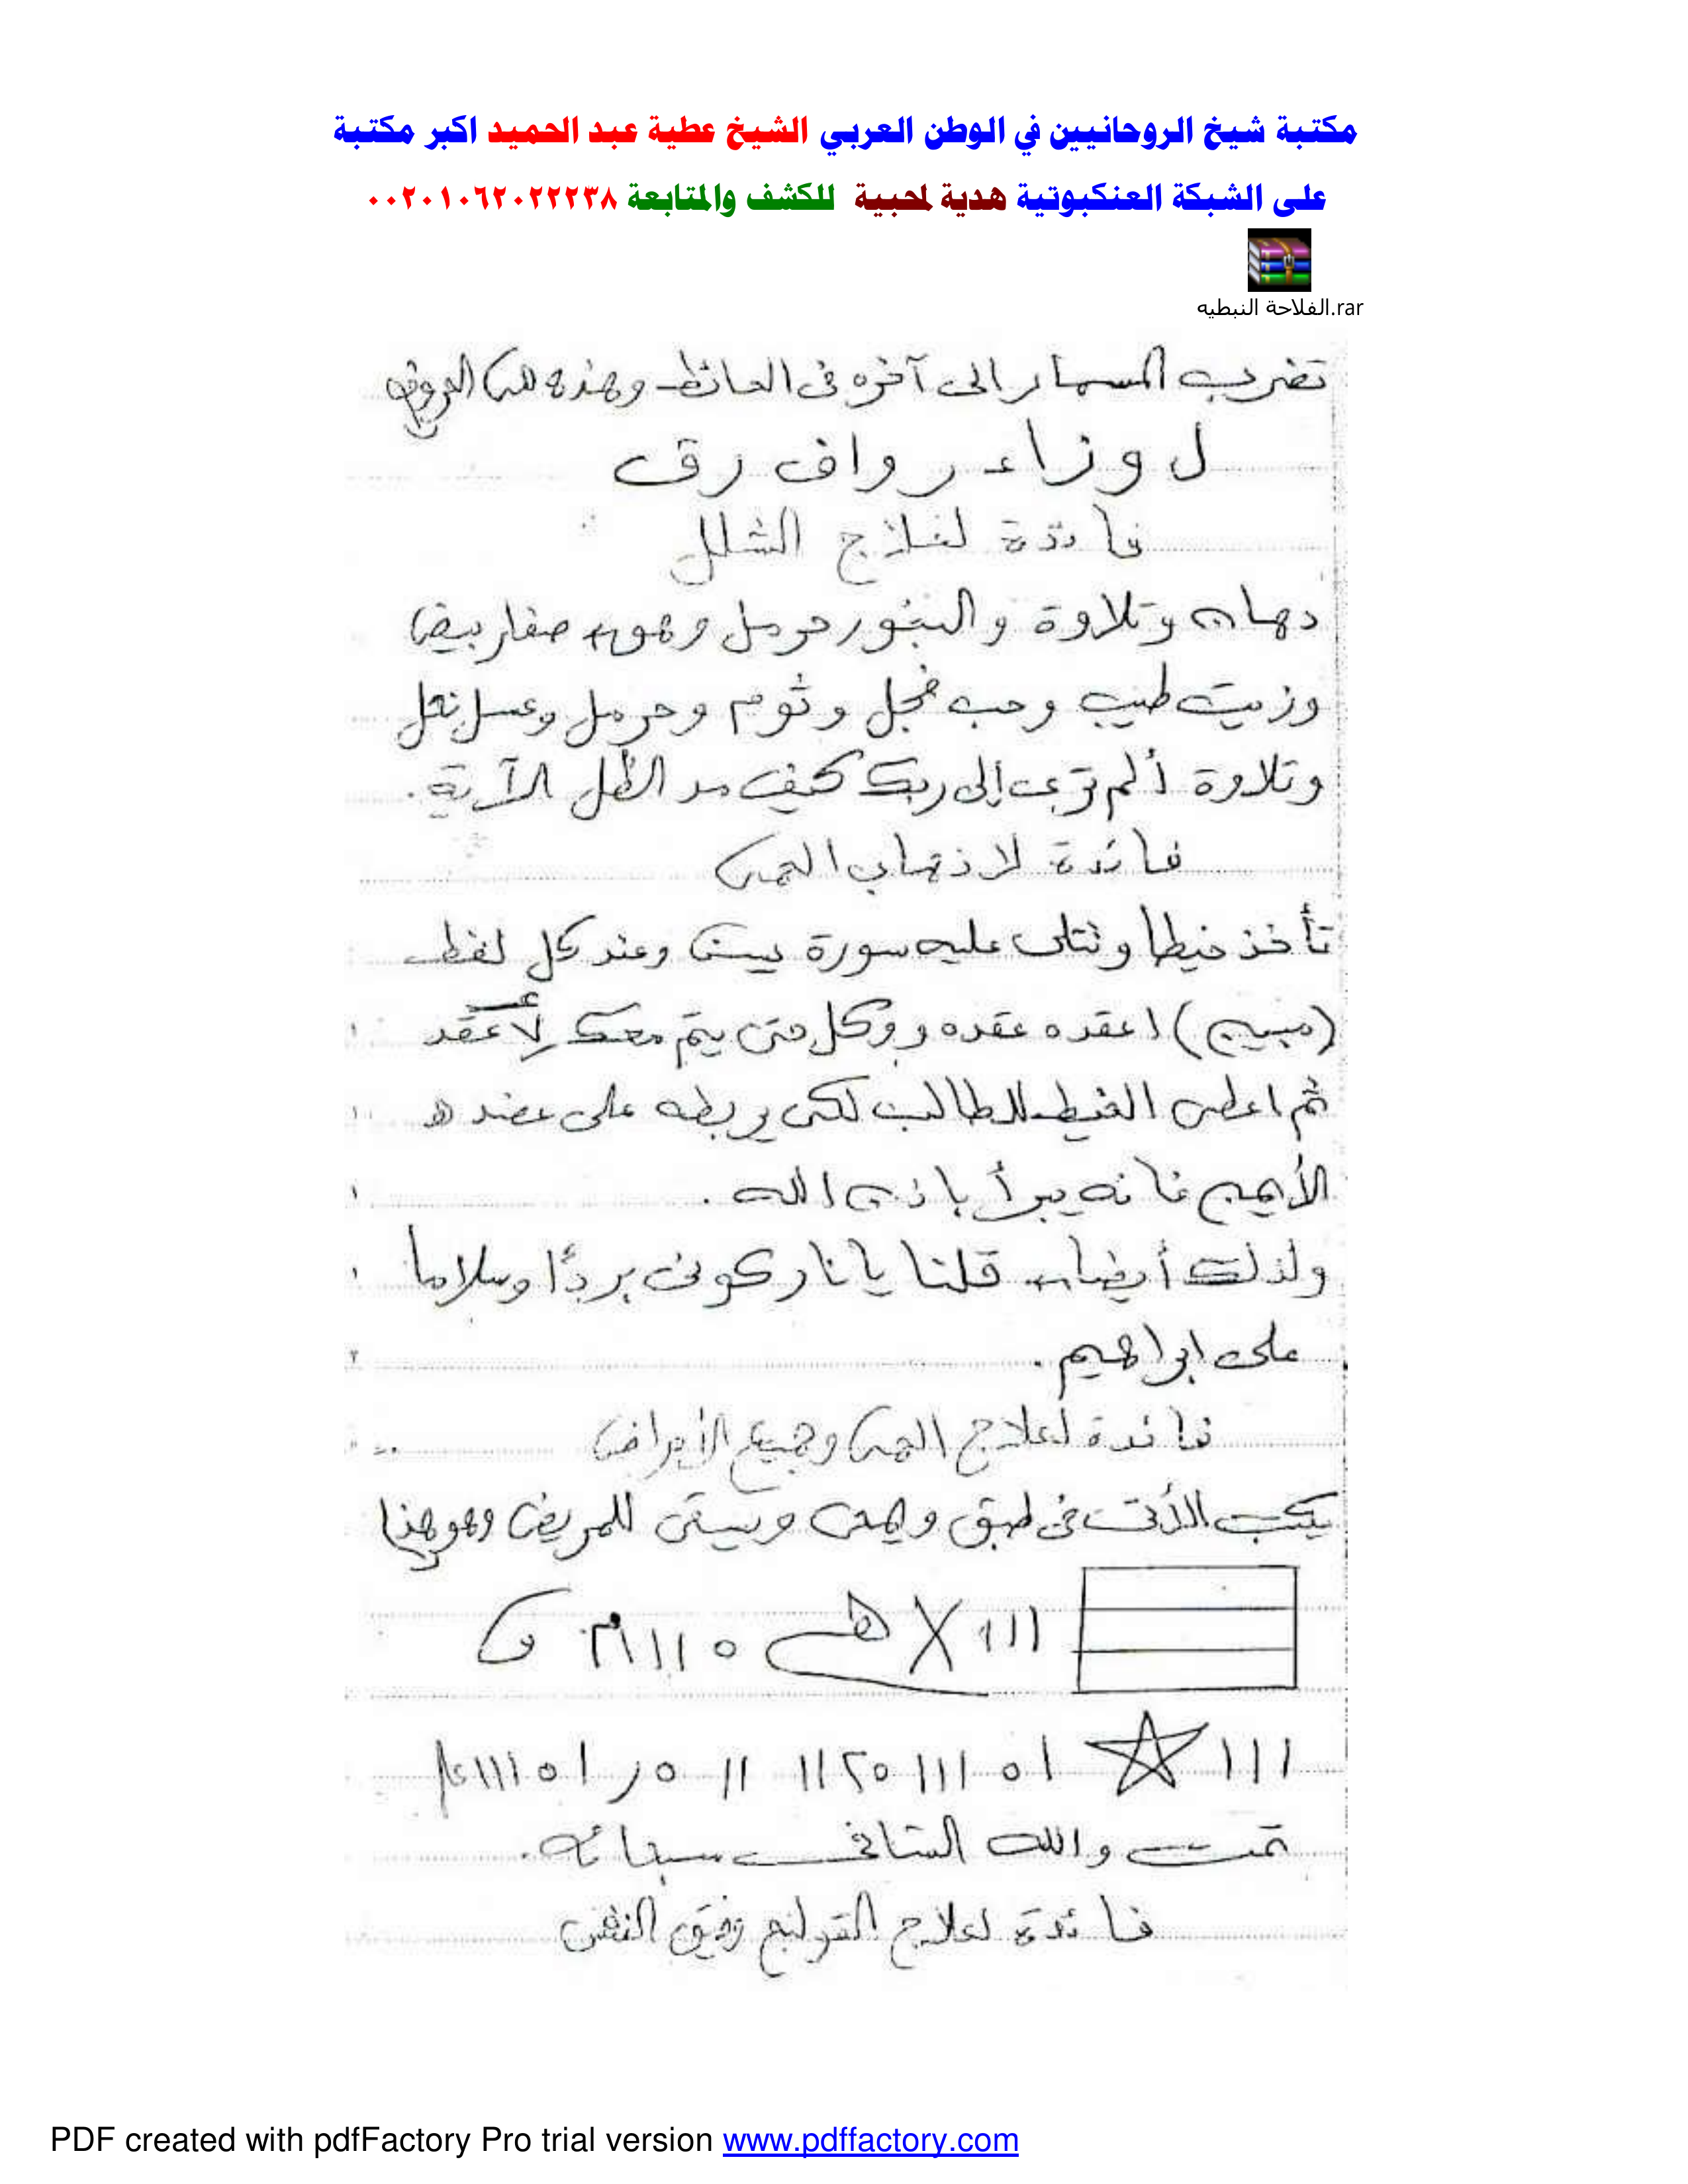 مكتبة شيخ الروحانيين في الوطن العربي الشيخ عطية عبد الحميد اكبر مكتبة
على الشبكة العنكبوتية هدية لمحبية للكشف والمتابعة ٠٠٢٠١٠٦٢٠٢٢٢٣٨
الفلاحة النبطيه.rar
تضرب المسمار الى آخره فى الحائط وهذه هى الحروف
ل و ز ا ء ر و ا ف ر ق
فائدة لعلاج الشلل
دهان وتلاوة والبخور حرمل وهو صفار بيض
وزيت طيب وحب فجل وثوم وحرمل وعسل نحل
وتلاوة ألم ترى إلى ربك كيف مد الظل الآية.
فائدة لاذهاب الحمى
تأخذ خيطا وتتلى عليه سورة يس وعند كل لفظ
(مبين) اعقده عقده ووكل حتى يتم معك عقد
ثم اعطى الخيط للطالب لكى يربطه على عضده
الأيمن فانه يبرأ باذن الله.
ولذلك أيضا قلنا يا نار كونى بردًا وسلاما
على ابراهيم.
فائدة لعلاج الحمى وجميع الأمراض
يكتب الآتى فى طبق ويمحى ويسقى للمريض وهو هذا
١١١ X هـ ٥ ١١١م و
١١١ ☆ ١ ٥ ١١١ ٥ ٢ ١١ ١١ ٥ ر ١ ٥ ١١١
تمت والله الشافى سبحانه.
فائدة لعلاج القولنج وضيق النفس
PDF created with pdfFactory Pro trial version www.pdffactory.com